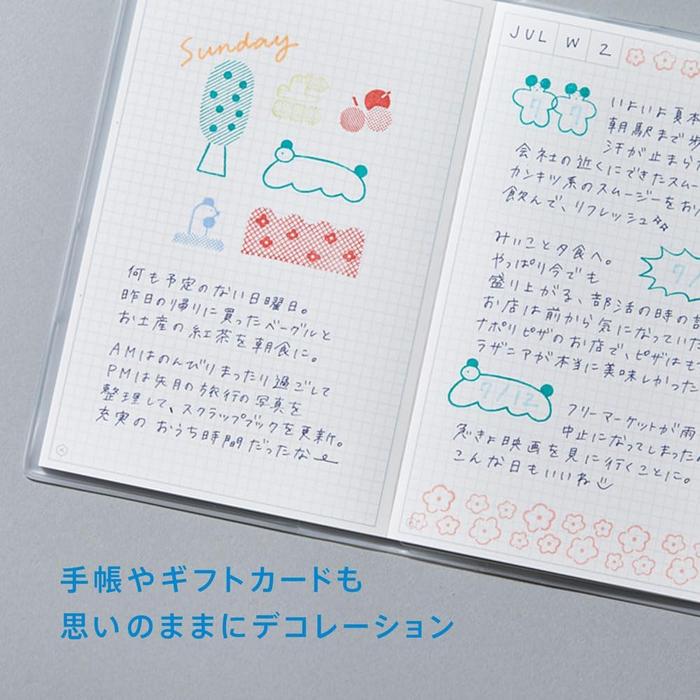 Sunday
何も予定のない日曜日。
昨日の帰りに買ったベーグルと
お土産の紅茶を朝食に。
AMはのんびりまったり過ごして
PMは先月の旅行の写真を
整理して、スクラップブックを更新。
充実の おうち時間だったな
JUL W 2
いよいよ夏本
朝駅まで歩
汗が止まら
会社の近くにできたスムー
カンキツ系のスムージーをお
飲んで、リフレッシュ
みいこと夕食へ。
やっぱり今でも
盛り上がる、部活の時の
お店は前から気になっていた
ナポリピザのお店で、ピザはも
ラザニアが本当に美味しかった
7/12
フリーマーケットが雨
中止になってしまった
急きょ映画を見に行くことに。
こんな日もいいね
手帳やギフトカードも
思いのままにデコレーション